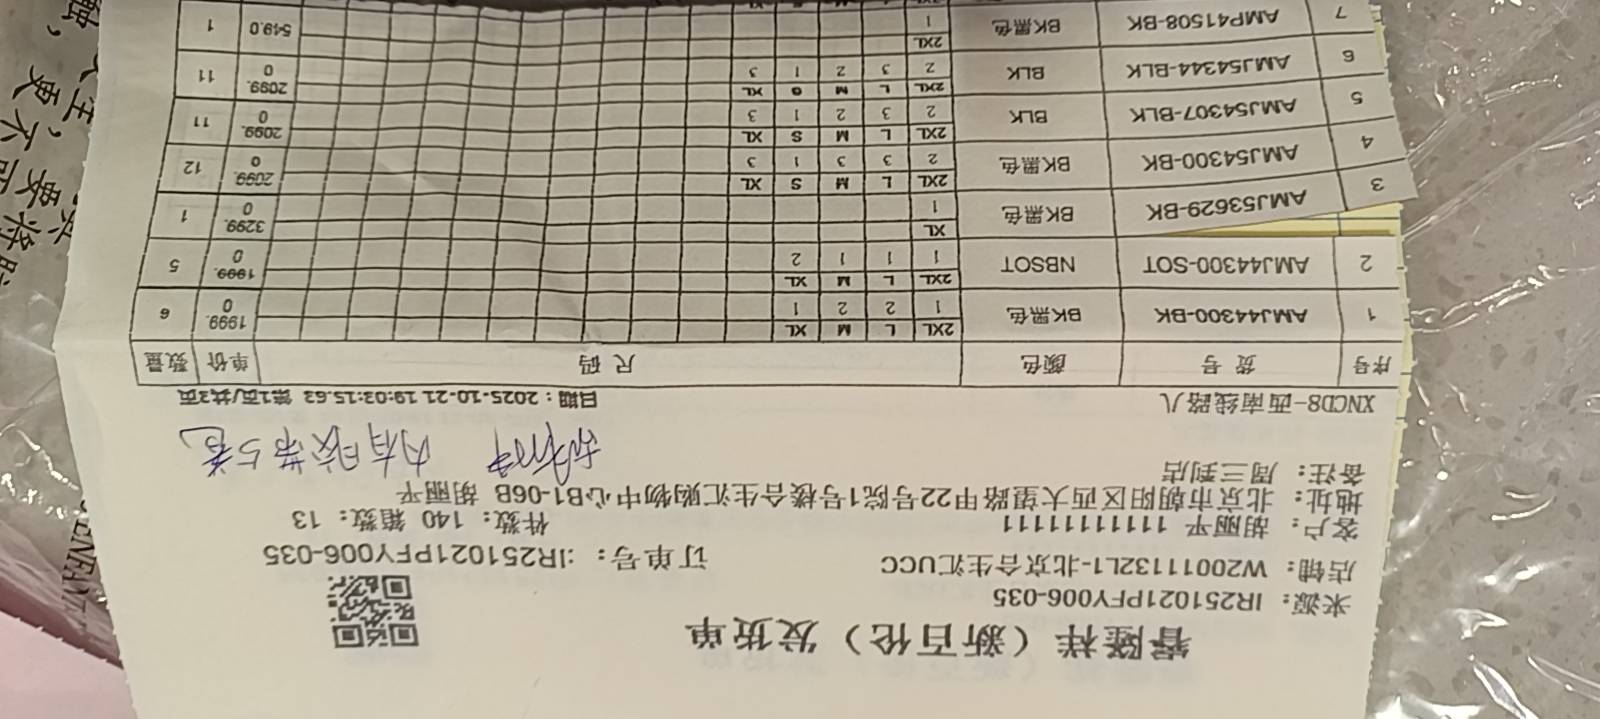 睿隆祥（新百伦）发货单
来源： IR251021PFY006-035
店铺： W20011132L1-北京合生汇UCC 订单号： :IR251021PFY006-035
客户： 胡丽平 11111111111 件数： 140 箱数： 13
地址： 北京市朝阳区西大望路甲22号院1号楼合生汇购物中心B1-06B 胡丽平
备注： 周三到店
内有胶带5卷
XNCD8-西南线路八 日期：2025-10-21 19:03:15.63 第1页/共3页
序号 货号 颜色 尺码 单价 数量
2XL L M XL
1 AMJ44300-BK BK黑色 1 2 2 1 1999.0 6
2XL L M XL
2 AMJ44300-SOT NBSOT 1 1 1 2 1999.0 5
XL
3 AMJ53629-BK BK黑色 1 3299.0 1
2XL L M S XL
4 AMJ54300-BK BK黑色 2 3 3 1 3 2099.0 12
2XL L M S XL
5 AMJ54307-BLK BLK 2 3 2 1 3 2099.0 11
2XL L M S XL
6 AMJ54344-BLK BLK 2 3 2 1 3 2099.0 11
2XL
7 AMP41508-BK BK黑色 1 549.0 1